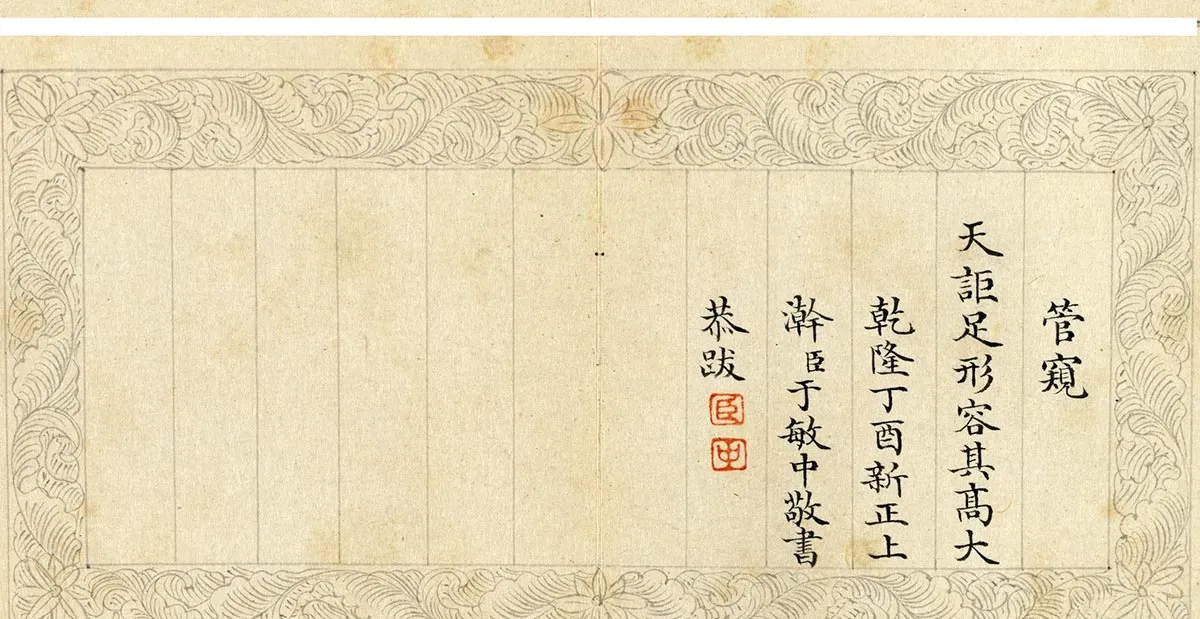 管窺
天詎足形容其高大
乾隆丁酉新正上
澣臣于敏中敬書
恭跋
臣
中